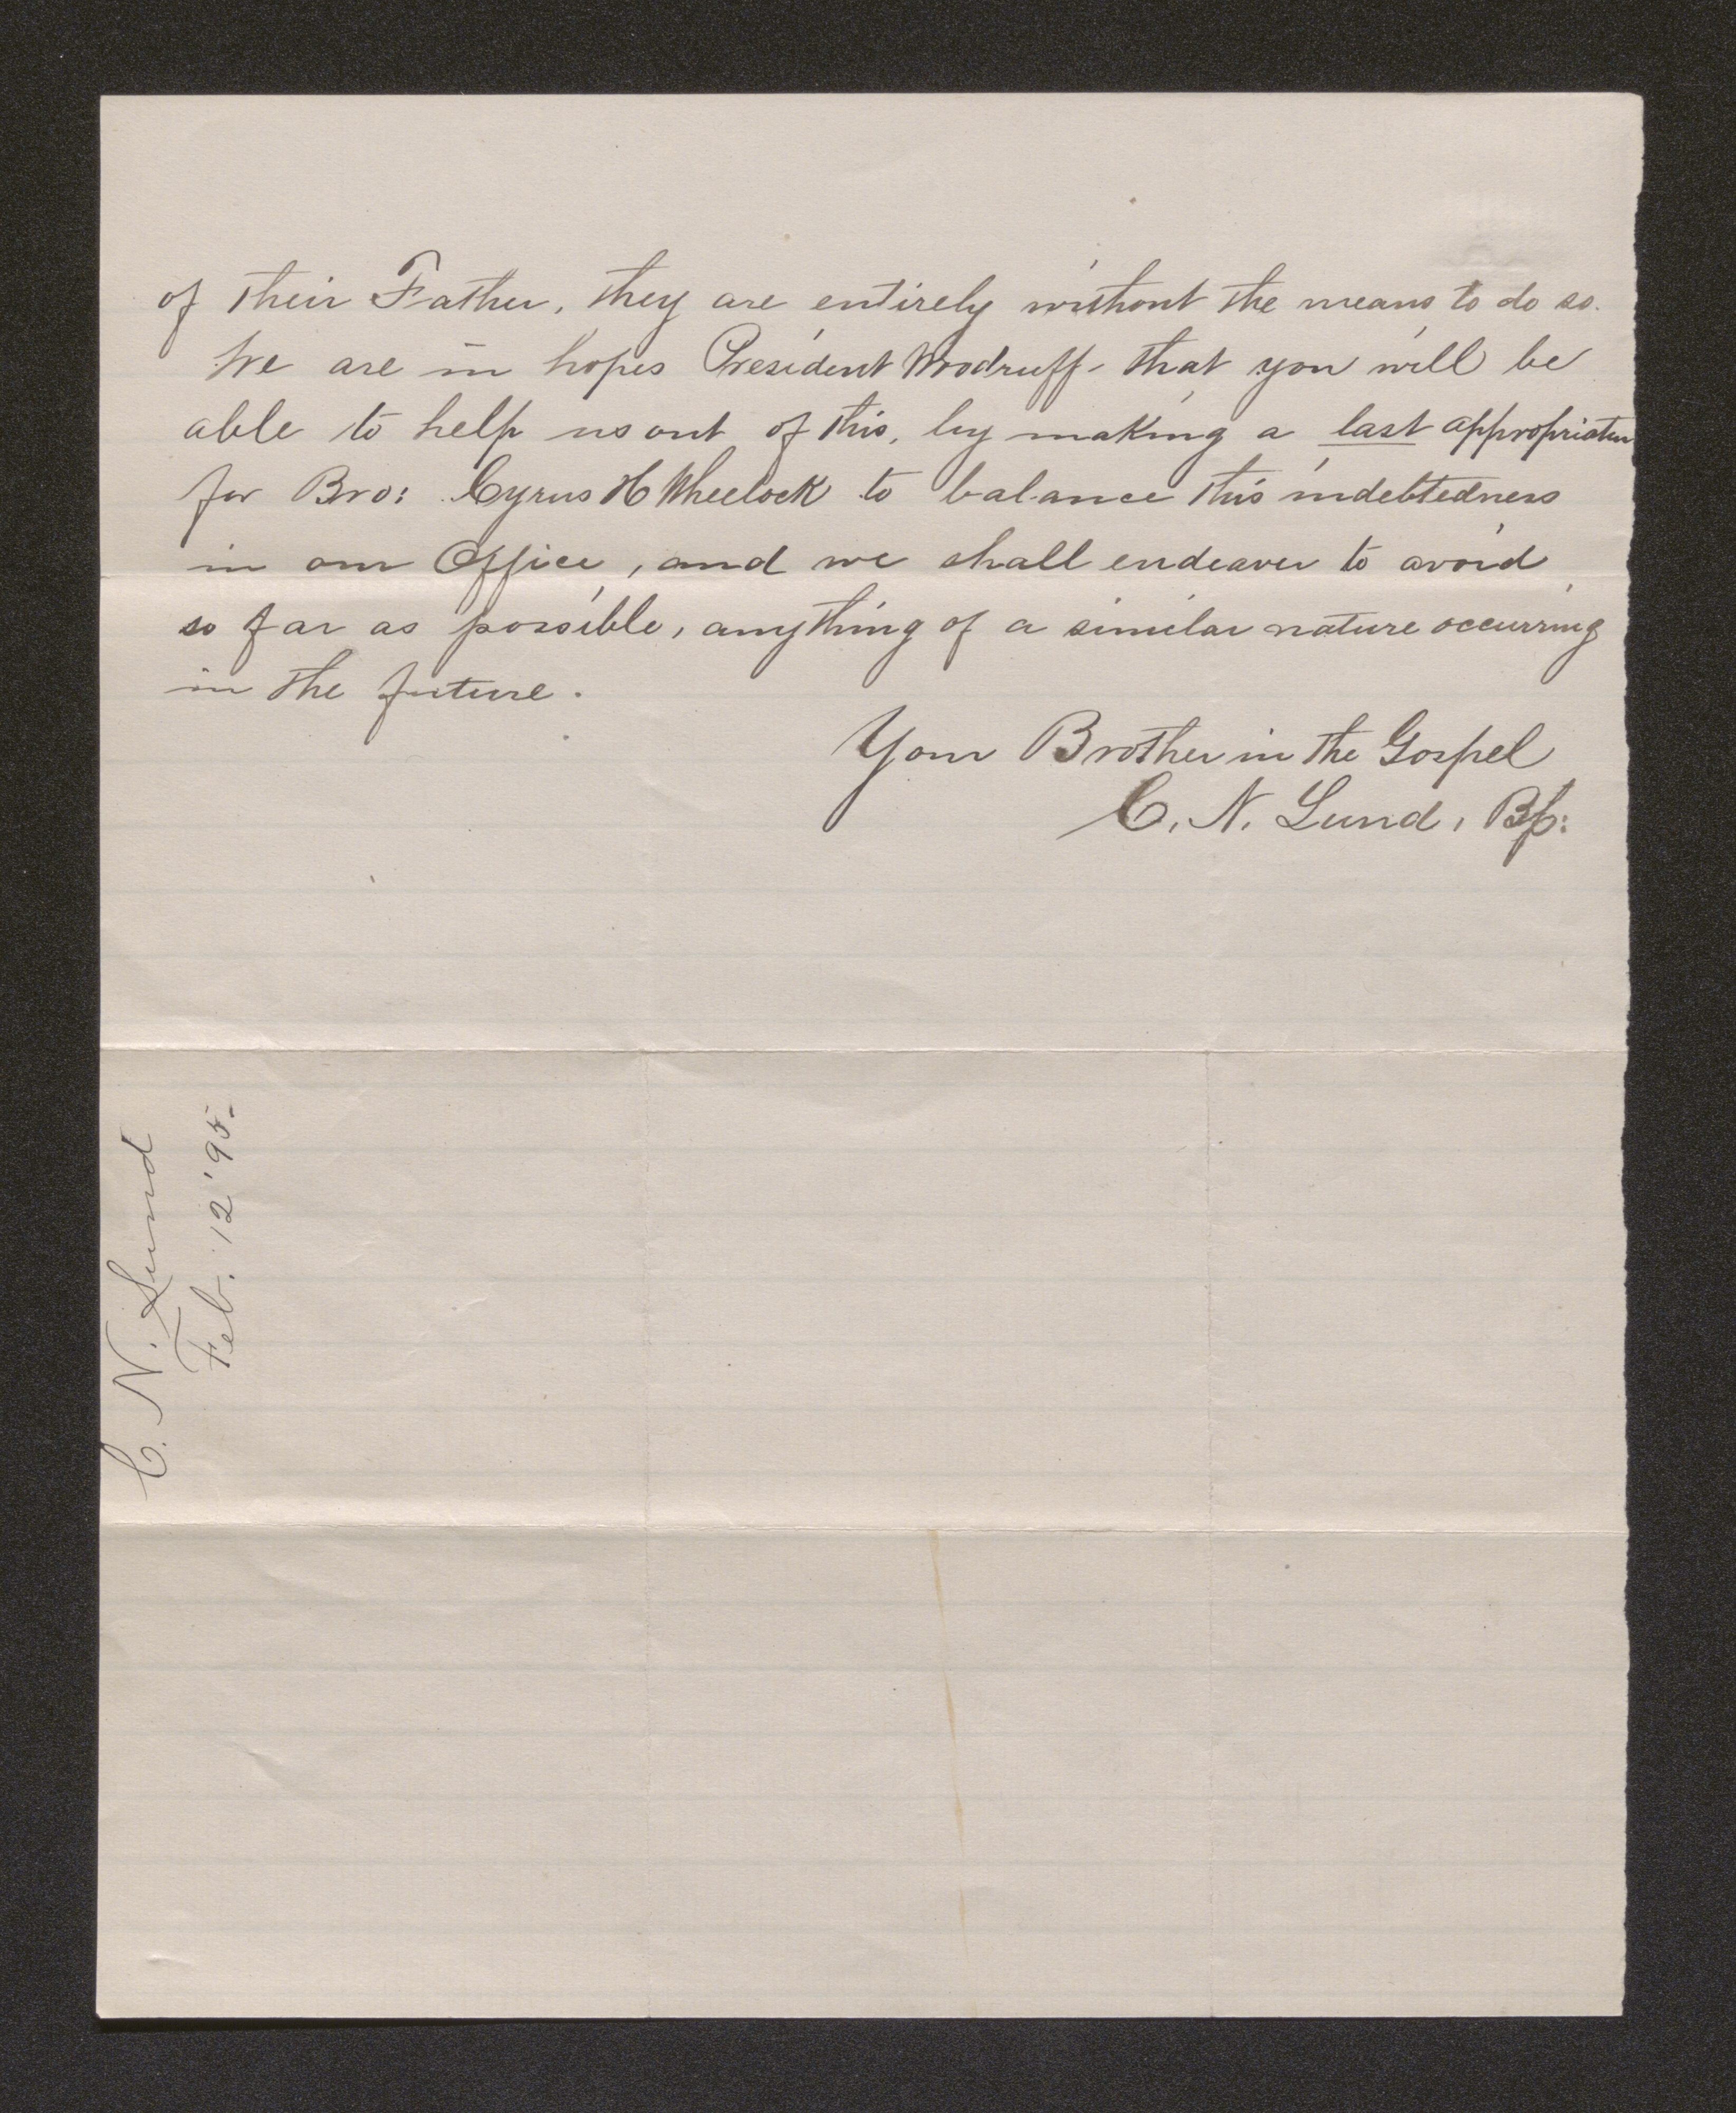 of their Father, they are entirely without the means to do so.
We are in hopes President Woodruff - that you will be
able to help us out of this, by making a last appropriation
for Bro: Cyrus H Wheelock to balance this indebtedness
in our Office, and we shall endeaver to avoid
so far as possible, anything of a similar nature occurring
in the future.
Your Brother in the Gospel
C. N. Lund, Bp:
C. N. Lund
Feb. 12 '95.